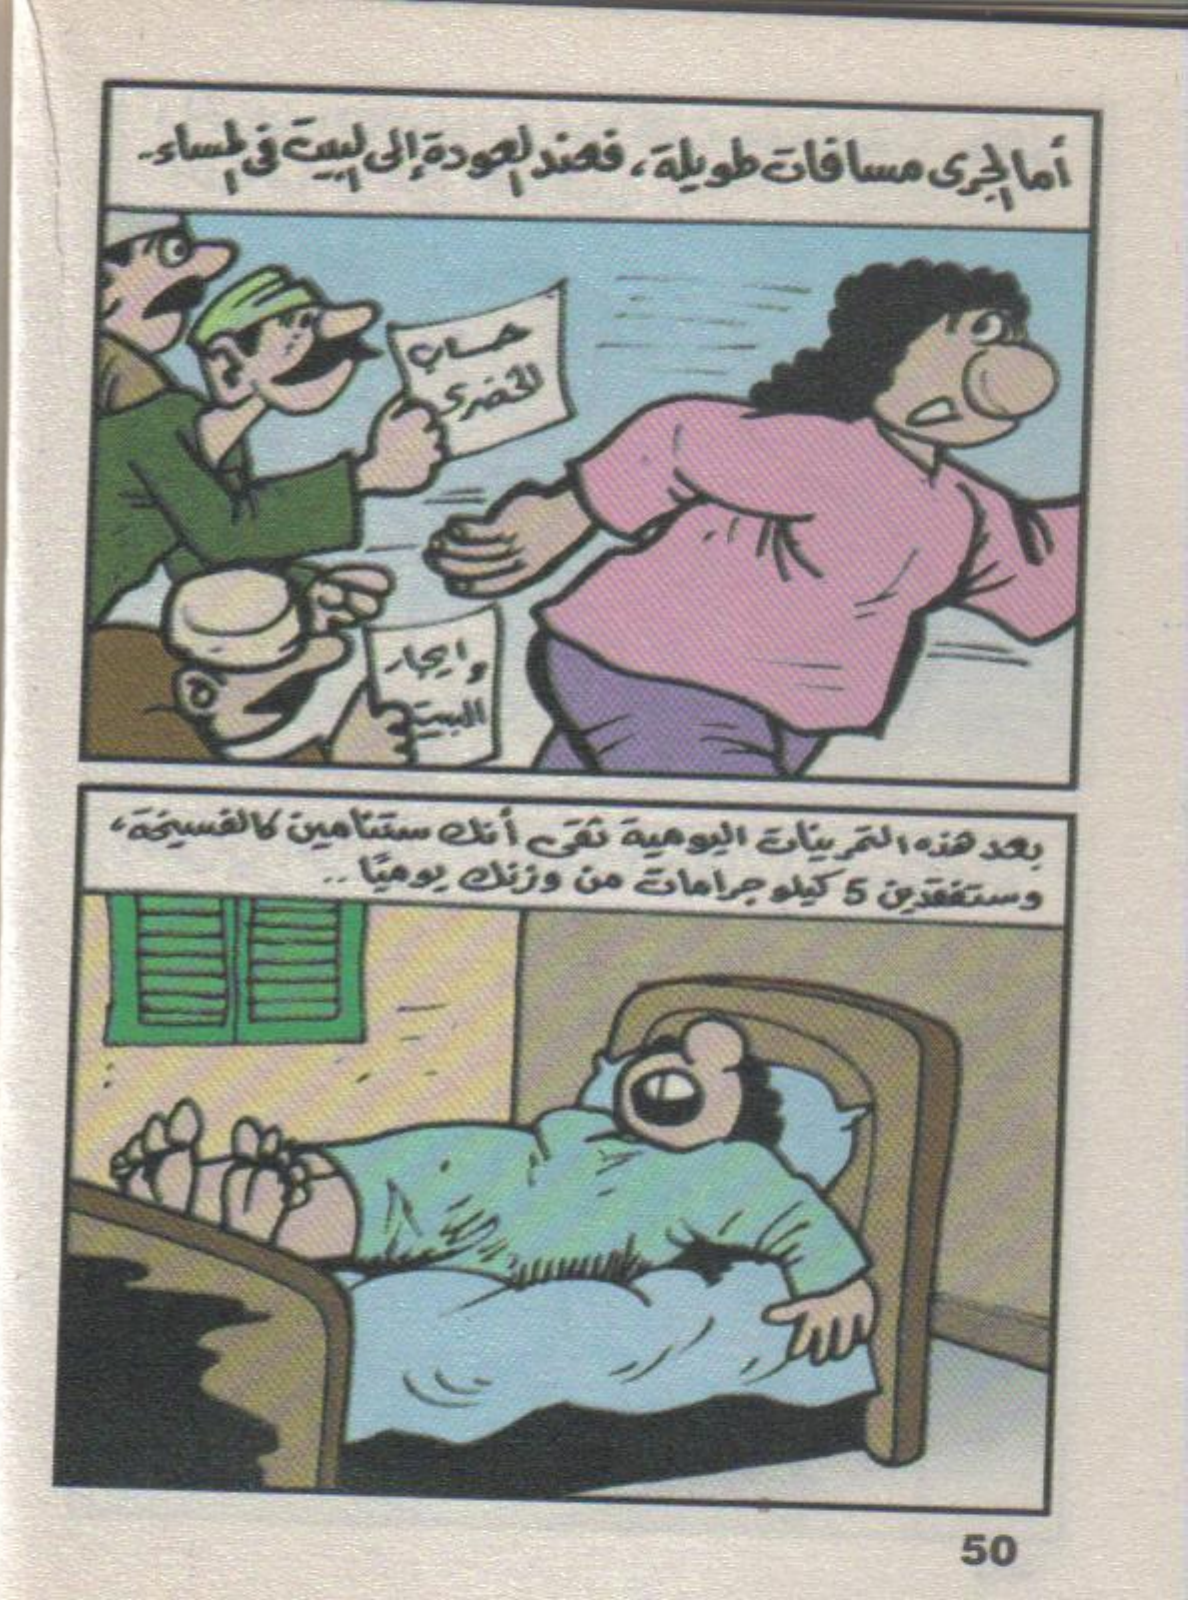 أما الجرى مسافات طويلة، فعند العودة إلى البيت فى المساء..
حساب
الخضرى
وإيجار
البيت
بعد هذه التمرينات اليومية ثقى أنك ستنامين كالفسيخة،
وستفقدين 5 كيلو جرامات من وزنك يوميًا..
50